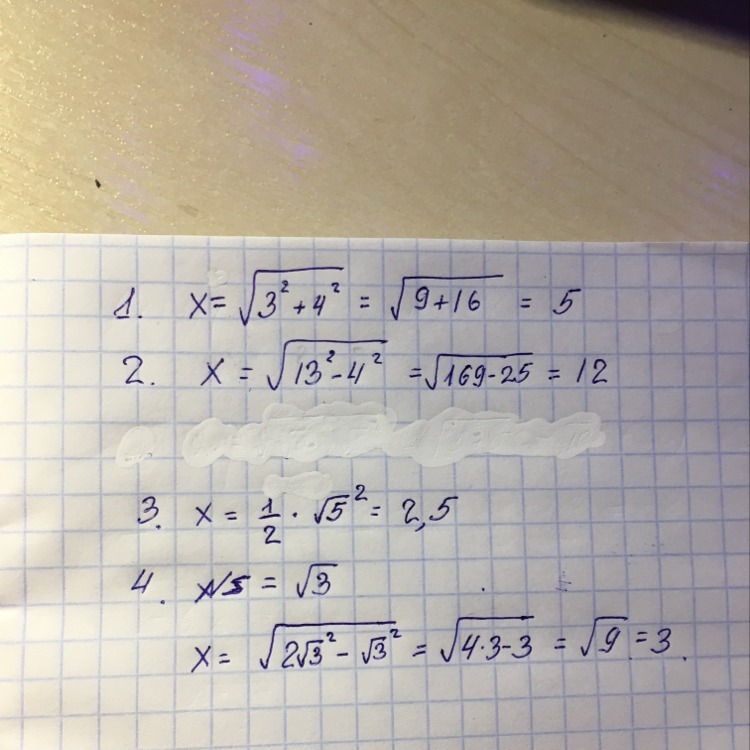 1. x = √(3² + 4²) = √(9 + 16) = 5
2. x = √(13² - 4²) = √(169 - 25) = 12
3. x = 1/2 · √5² = 2,5
4. = √3
x = √(2√3² - √3²) = √(4·3 - 3) = √9 = 3.